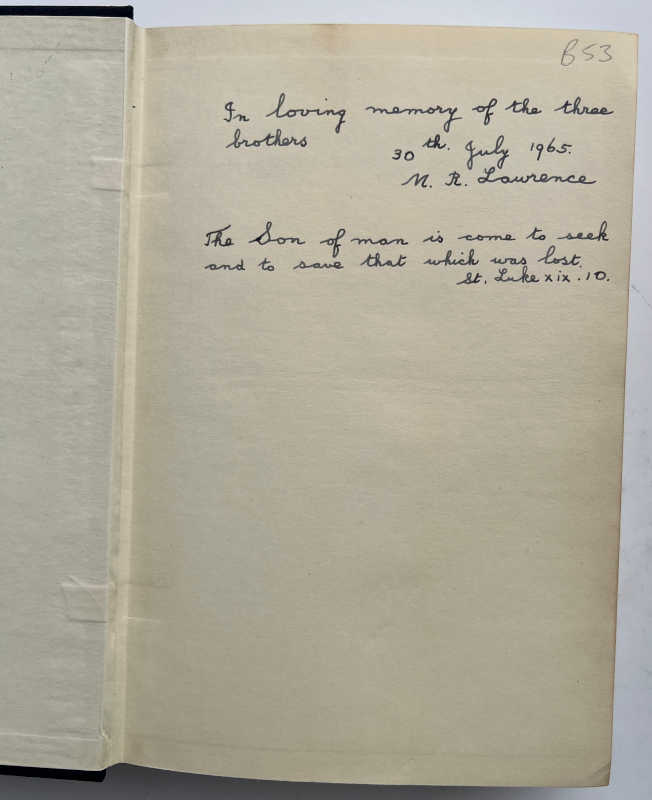 B53
In loving memory of the three
brothers
30th. July 1965.
M. R. Lawrence
The Son of man is come to seek
and to save that which was lost.
St. Luke xix. 10.